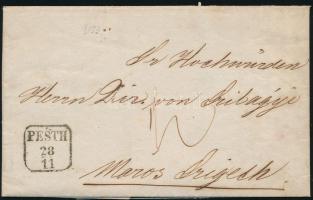 Sr Hochwürden
Herrn Dir. von Szilágyi
PESTH
28
11
Maros Szigeth.